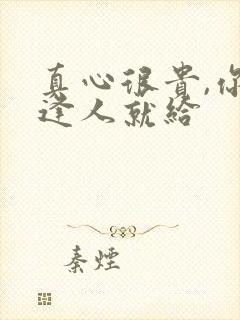 真心很貴,你
逢人就給
秦煙